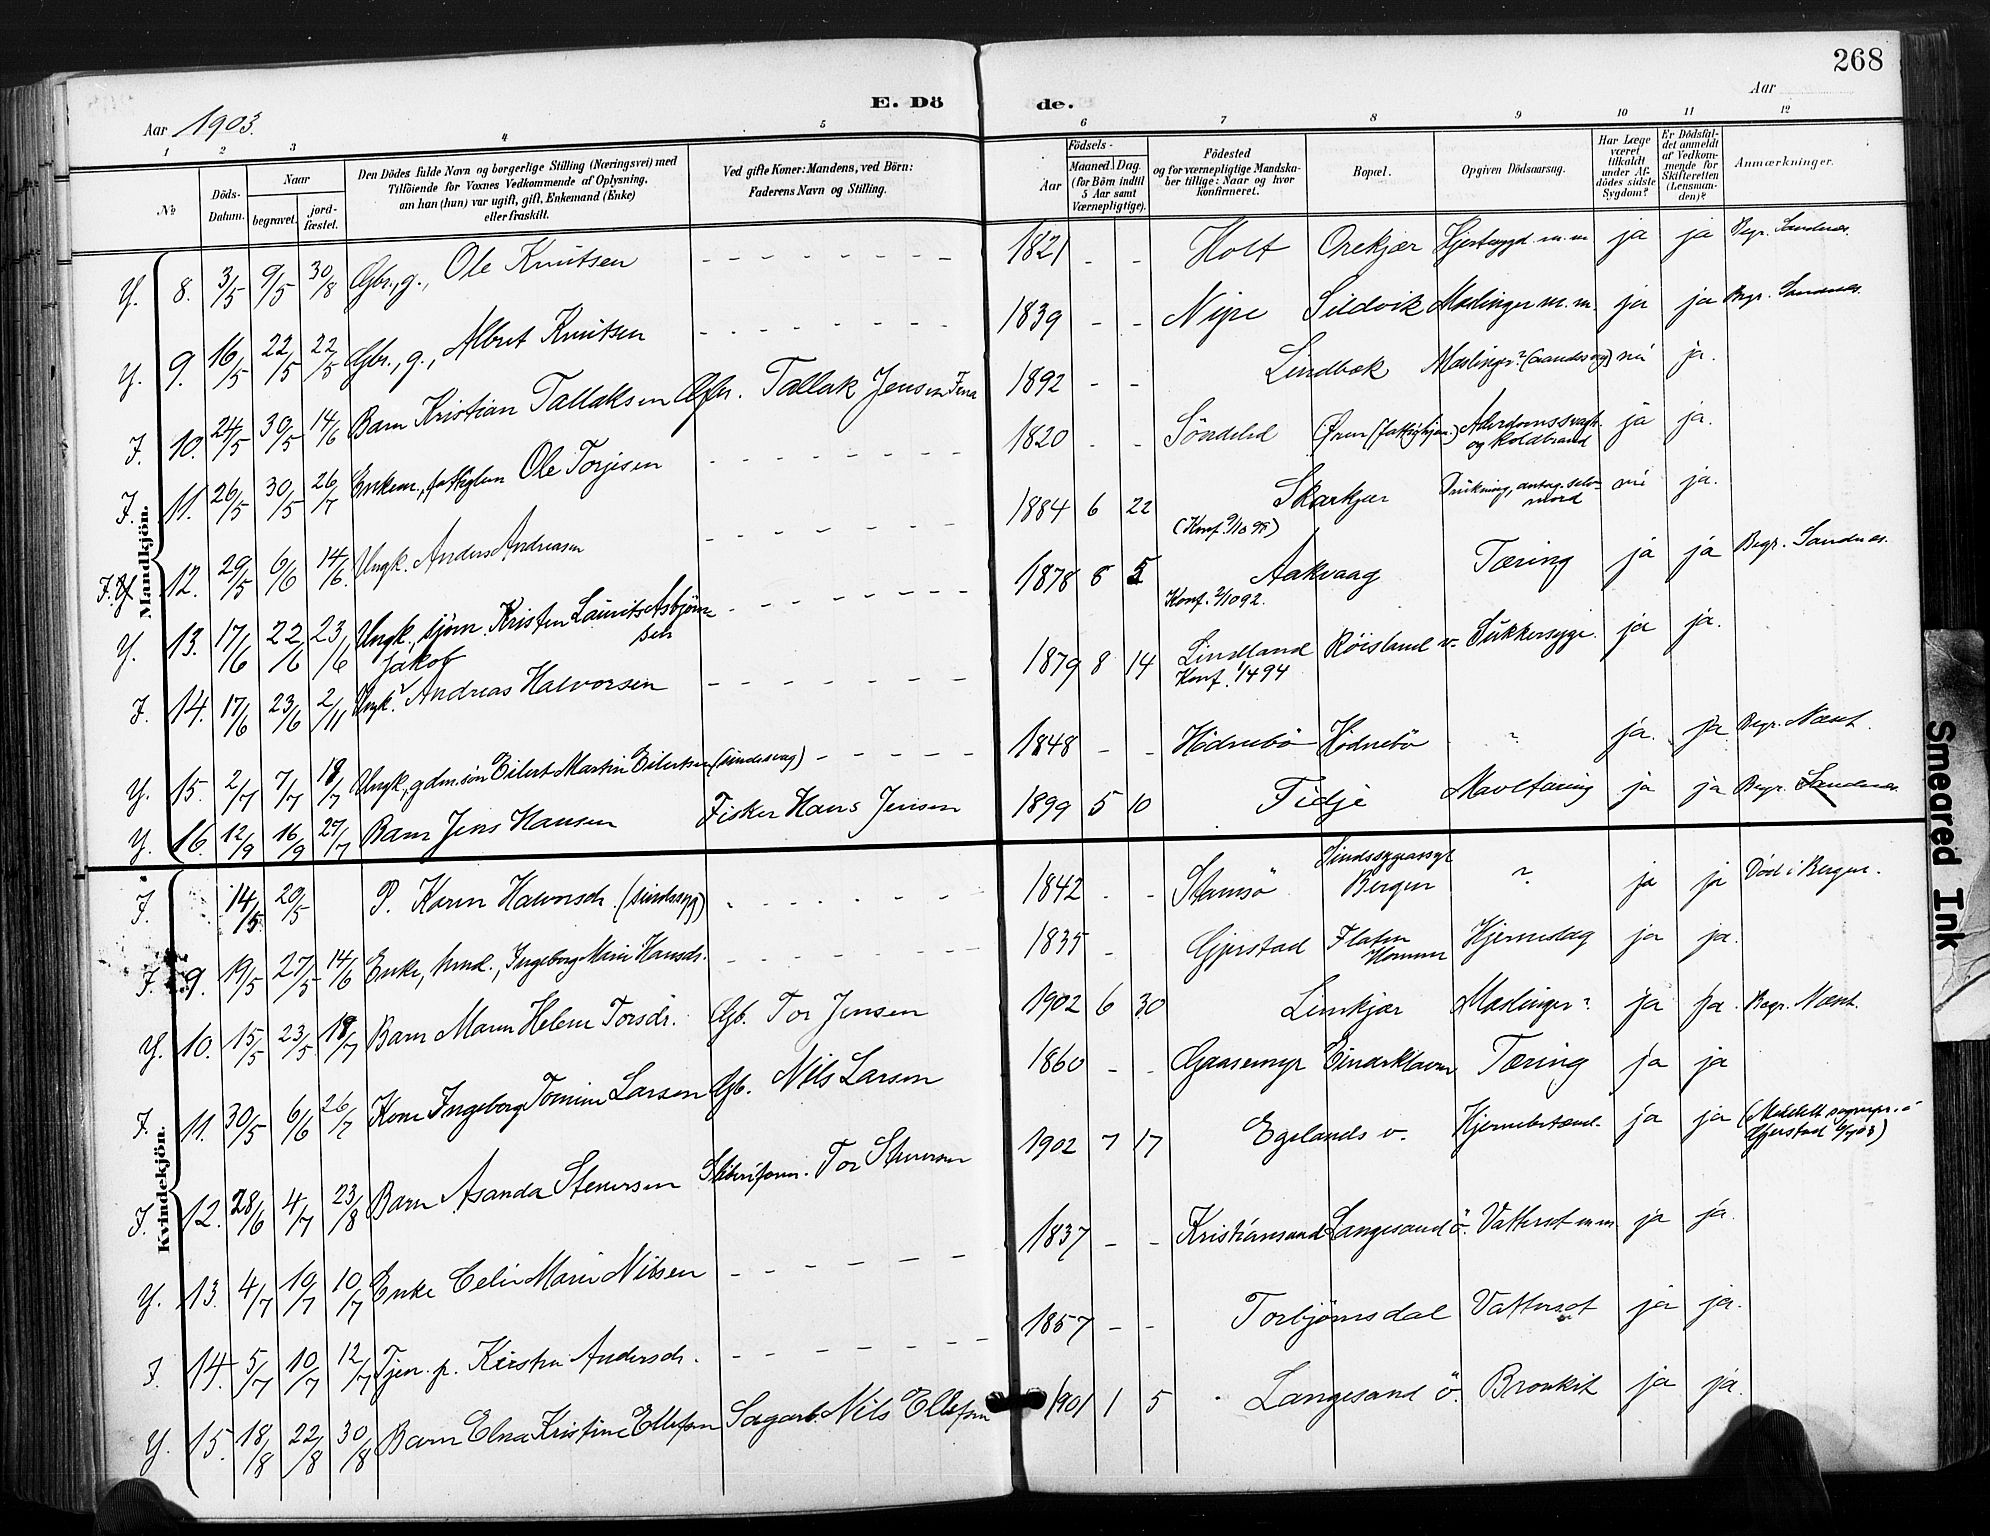 268
E. Dö de.
Aar 1903. Aar
1 2 3 4 5 6 7 8 9 10 11 12
№ Döds-Datum. Naar begravet. jord-fæstet. Den Dödes fulde Navn og borgerlige Stilling (Næringsvei) med Tilföiende for Voxnes Vedkommende af Oplysning, om han (hun) var ugift, gift, Enkemand (Enke) eller fraskilt. Ved gifte Koner: Mandens, ved Börn: Faderens Navn og Stilling. Födsels- Aar Maaned Dag. (for Börn indtil 5 Aar samt Værnepligtige). Födested og for værnepligtige Mandska-ber tillige: Naar og hvor konfirmeret. Bopæl. Opgiven Dödsaarsag. Har Læge været tilkaldt under Af-dödes sidste Sygdom? Er Dödsfal-det anmeldt af Vedkom-mende for Skifteretten (Lensman-den)? Anmærkninger.
Mandkjön.
Y. 8. 3/5 9/5 30/8 Gbr., g., Ole Knutsen 1821 - - Holt Orekjær Hjertesygd. m.m ja ja Begr. Sandnes.
Y. 9. 16/5 22/5 22/5 Gbr., g., Albert Knutsen 1839 - - Nipe Sildvik Mæslinger m.m. ja ja Begr. Sandnes.
I. 10. 24/5 30/5 14/6 Barn Kristian Tallaksen Gbr. Tallak Jensen 1892 - - Lindbæk Mæslinger? (aandssvag) nei ja.
I. 11. 26/5 30/5 26/7 Enkem., fattiglem Ole Torjesen 1820 - - Söndeled Øren (fattighjem.) Alderdomssvagh. og Koldbrand ja ja.
I. Y. 12. 29/5 6/6 14/6. Ungk. Anders Andreasen 1884 6 22 Skarkjær (Konf. 9/10 98) Drukning, antag. selv-mord nei ja.
Y. 13. 17/6 22/6 23/6 Ungk., sjöm. Kristen Laurits Asbjörn-sen 1878 8 5 Aakvaag Konf. 2/10 92. Tæring ja ja Begr. Sandnes.
I. 14. 17/6 23/6 2/11 Ungk. Jakob Andreas Halvorsen 1879 8 14 Lindland Konf. 1/4 94 Röisland v. Sukkersyge. ja ja.
Y. 15. 2/7 7/7 18/7 Ungk., gdmsön Eilert Martin Eilertsen (sindssvag) 1848 - - Hödnebö Hödnebö ? ja. ja Begr. Næset.
Y. 16. 12/9 16/9 27/7 Barn Jens Hansen Fisker Hans Jensen 1899 5 10 Fidje Mavetæring ja ja Begr. Sandnes.
Kvindekjön.
I. 14/5 20/5 P. Karen Halvorsdr. (sindssyg) 1842 - - Stamsö Sindssygeasyl Bergen ? ja ja Död i Bergen.
I. 9. 19/5 27/5 14/6 Enke, hmd., Ingeborg Marie Hansdr. 1835 - Gjerstad Flaten Hommen Hjerneslag ja ja.
Y. 10. 15/5 23/5 18/7 Barn Maren Helene Torsdr. Gb. Tor Jensen 1902 6 30 Lindkjær Mæslinger? ja ja. Begr. Næset.
I. 11. 30/5 6/6 26/7 Kone Ingeborg Tomine Larsen Gb. Nils Larsen 1860 - - Gaasemyr Eimerkleven Tæring ja ja
I. 12. 28/6 4/7 23/8 Barn Asanda Stensrsen Sliberiform. Tor Stenersen 1902 7 17 Egelands v. Hjernebetænd. ja ja (Meddelt sogneprs. i Gjerstad
Y. 13. 4/7 10/7 10/7 Enke Celie Marie Nilsen 1837 - - Kristiansand Langesand ö. Vattersot m.m. ja ja.
I. 14. 5/7 10/7 12/7 Tjen. p. Kirsten Andersdr. 1857 - - Torbjörnsdal Vattersot ja ja.
Y. 15. 18/8 22/8 30/8 Barn Elna Kristine Ellefsen Sagarb. Nils Ellefsen 1901 1 5 Langesand ö. Bronkit ja ja.
Smeared Ink